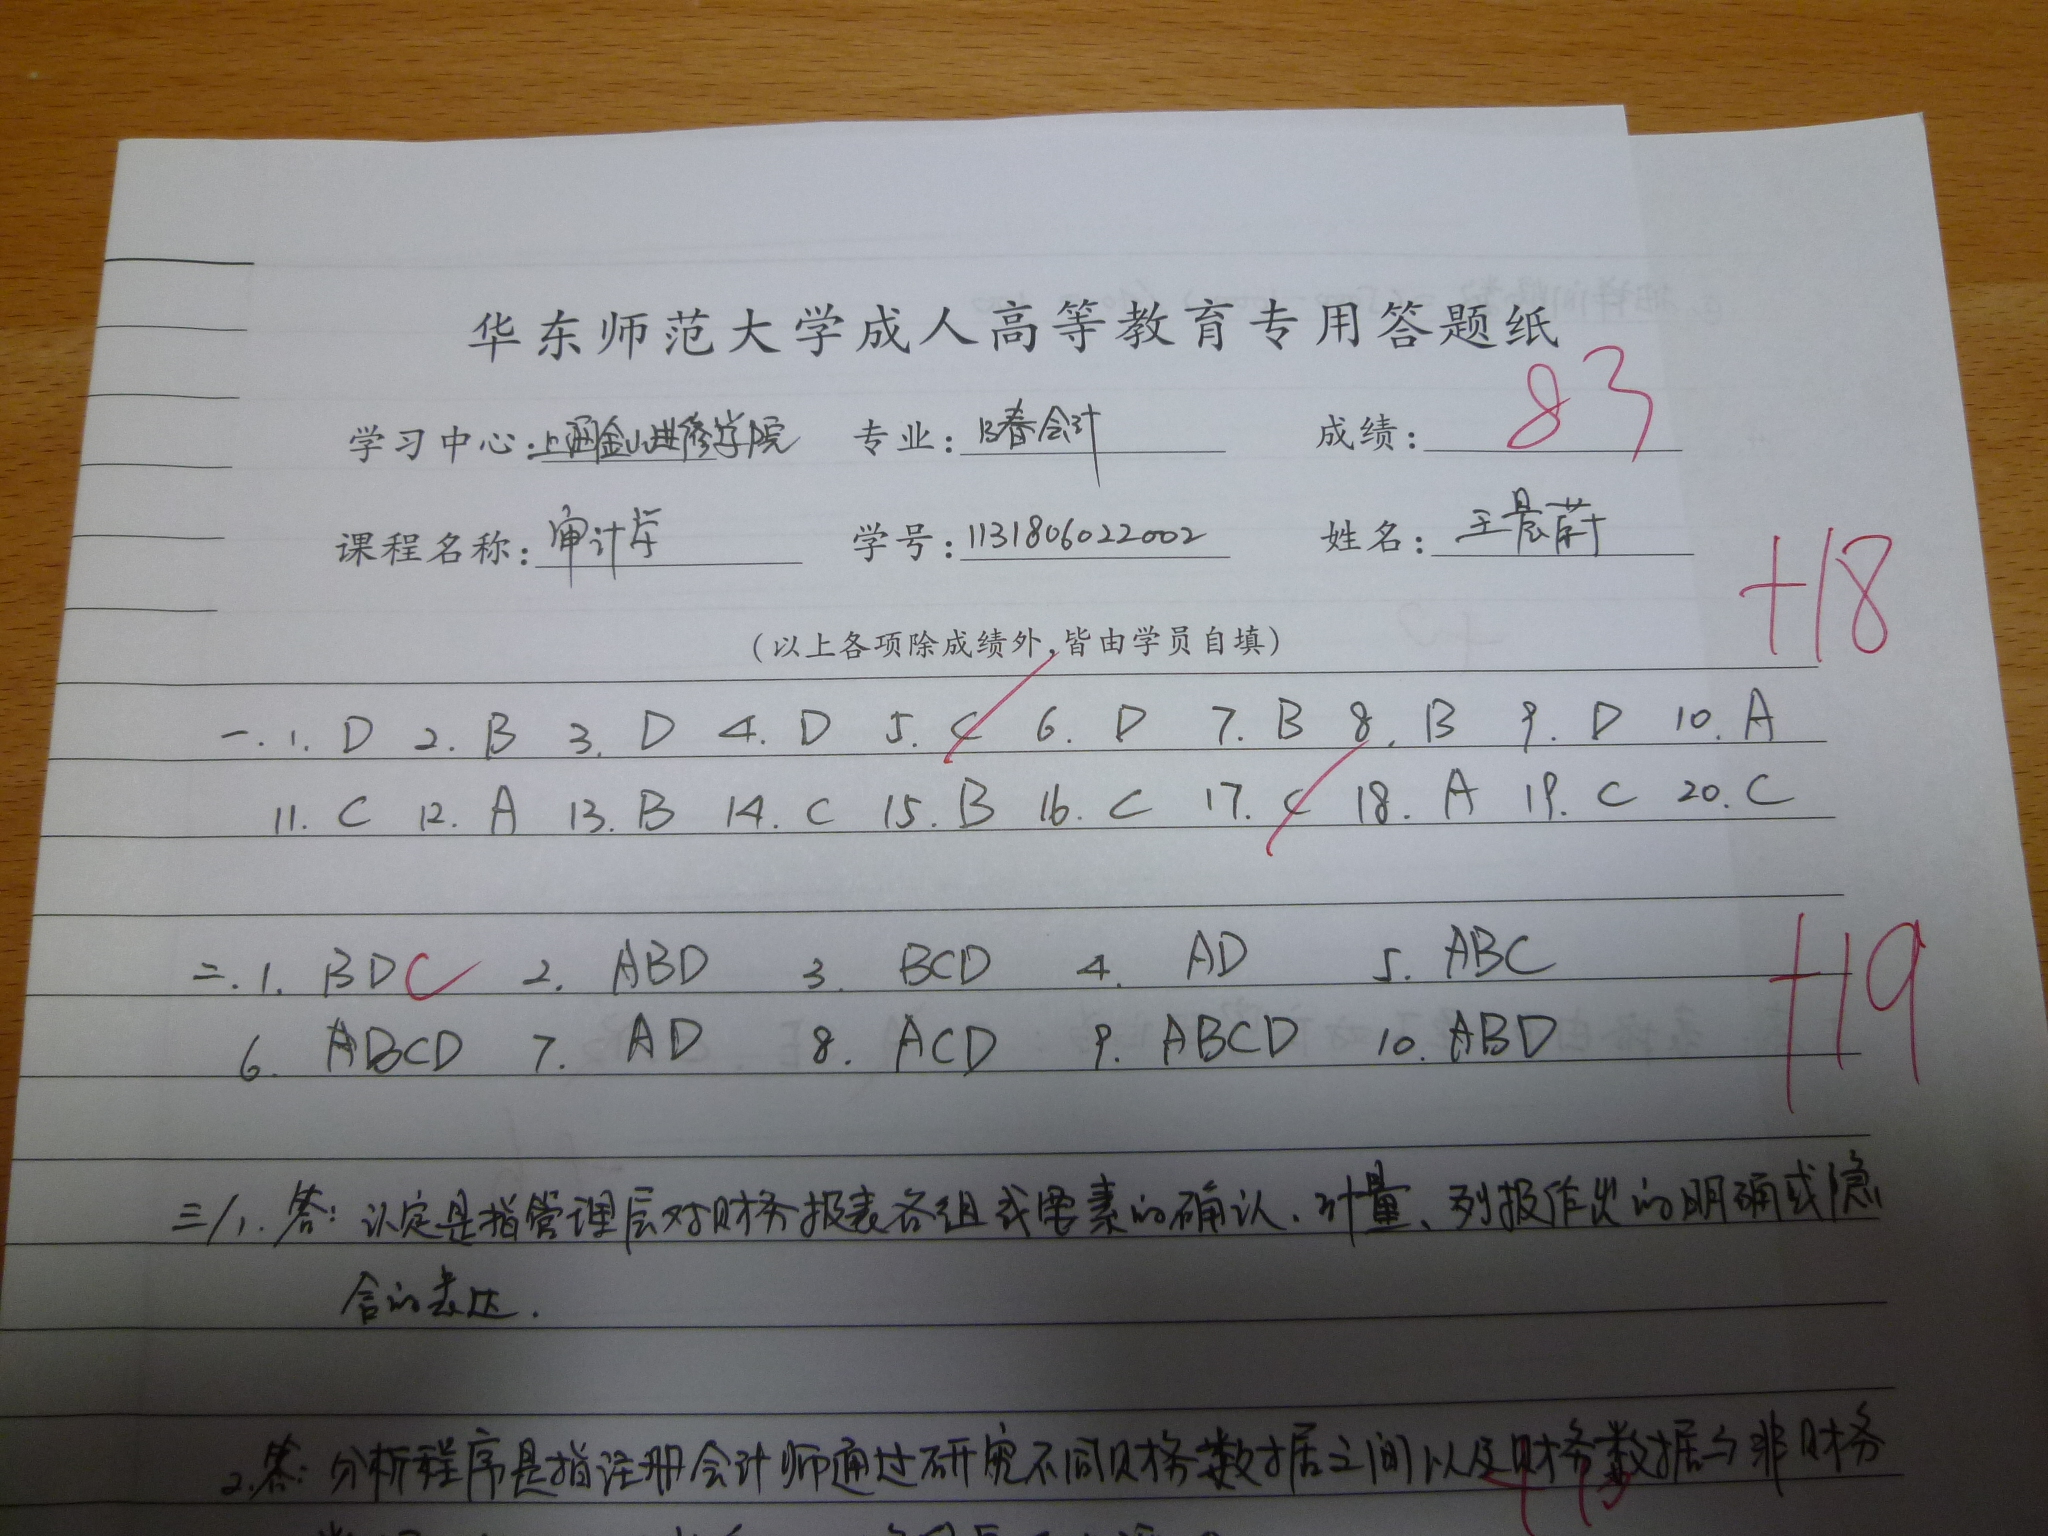 华东师范大学成人高等教育专用答题纸
学习中心:上海金山进修学院 专业:13春会计 成绩:83
课程名称:审计学 学号:1131806022002 姓名:王晨蔚
(以上各项除成绩外,皆由学员自填)
+18
一.1. D 2. B 3. D 4. D 5. C 6. D 7. B 8. B 9. D 10. A
11. C 12. A 13. B 14. C 15. B 16. C 17. C 18. A 19. C 20. C
二.1. BDC 2. ABD 3. BCD 4. AD 5. ABC
+19
6. ABCD 7. AD 8. ACD 9. ABCD 10. ABD
三/1.答:认定是指管理层对财务报表各组成要素的确认、计量、列报作出的明确或隐
含的表达.
2.答:分析程序是指注册会计师通过研究不同财务数据之间以及财务数据与非财务